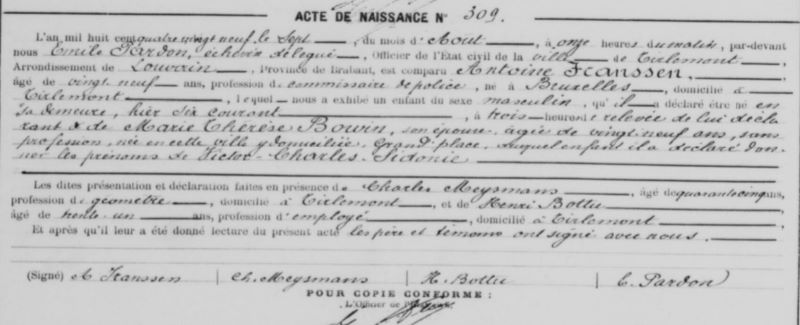 ACTE DE NAISSANCE Nº 309.
L'an mil huit cent quatre vingt neuf le sept, du mois d'Août, à onze heures du matin, par-devant
nous Emile Pardon, échevin délégué, Officier de l'Etat civil de la ville de Tirlemont,
Arrondissement de Louvain, Province de Brabant, est comparu Antoine Franssen,
âgé de vingt neuf ans, profession de commissaire de police, né à Bruxelles, domicilié à
Tirlemont, lequel nous a exhibé un enfant du sexe masculin, qu'il a déclaré être né en
sa demeure, hier six courant, à trois heures de relevée de lui décla
rant & de Marie Thérèse Bowin, son épouse, agée de vingt neuf ans, sans
profession, née en cette ville y domiciliée, Grand'place, auquel enfant il a déclaré don
ner les prénoms de Victor-Charles-Sidonie
Les dites présentation et déclaration faites en présence de Charles Meysmans, âgé de quarante cinq ans,
profession de géomètre, domicilié à Tirlemont, et de Henri Bottu,
âgé de trente-un ans, profession d'employé, domicilié à Tirlemont
Et après qu'il leur a été donné lecture du présent acte les père et témoins ont signé avec nous.
(Signé) A Franssen Ch. Meysmans H. Bottu E. Pardon
POUR COPIE CONFORME :
L'Officier de